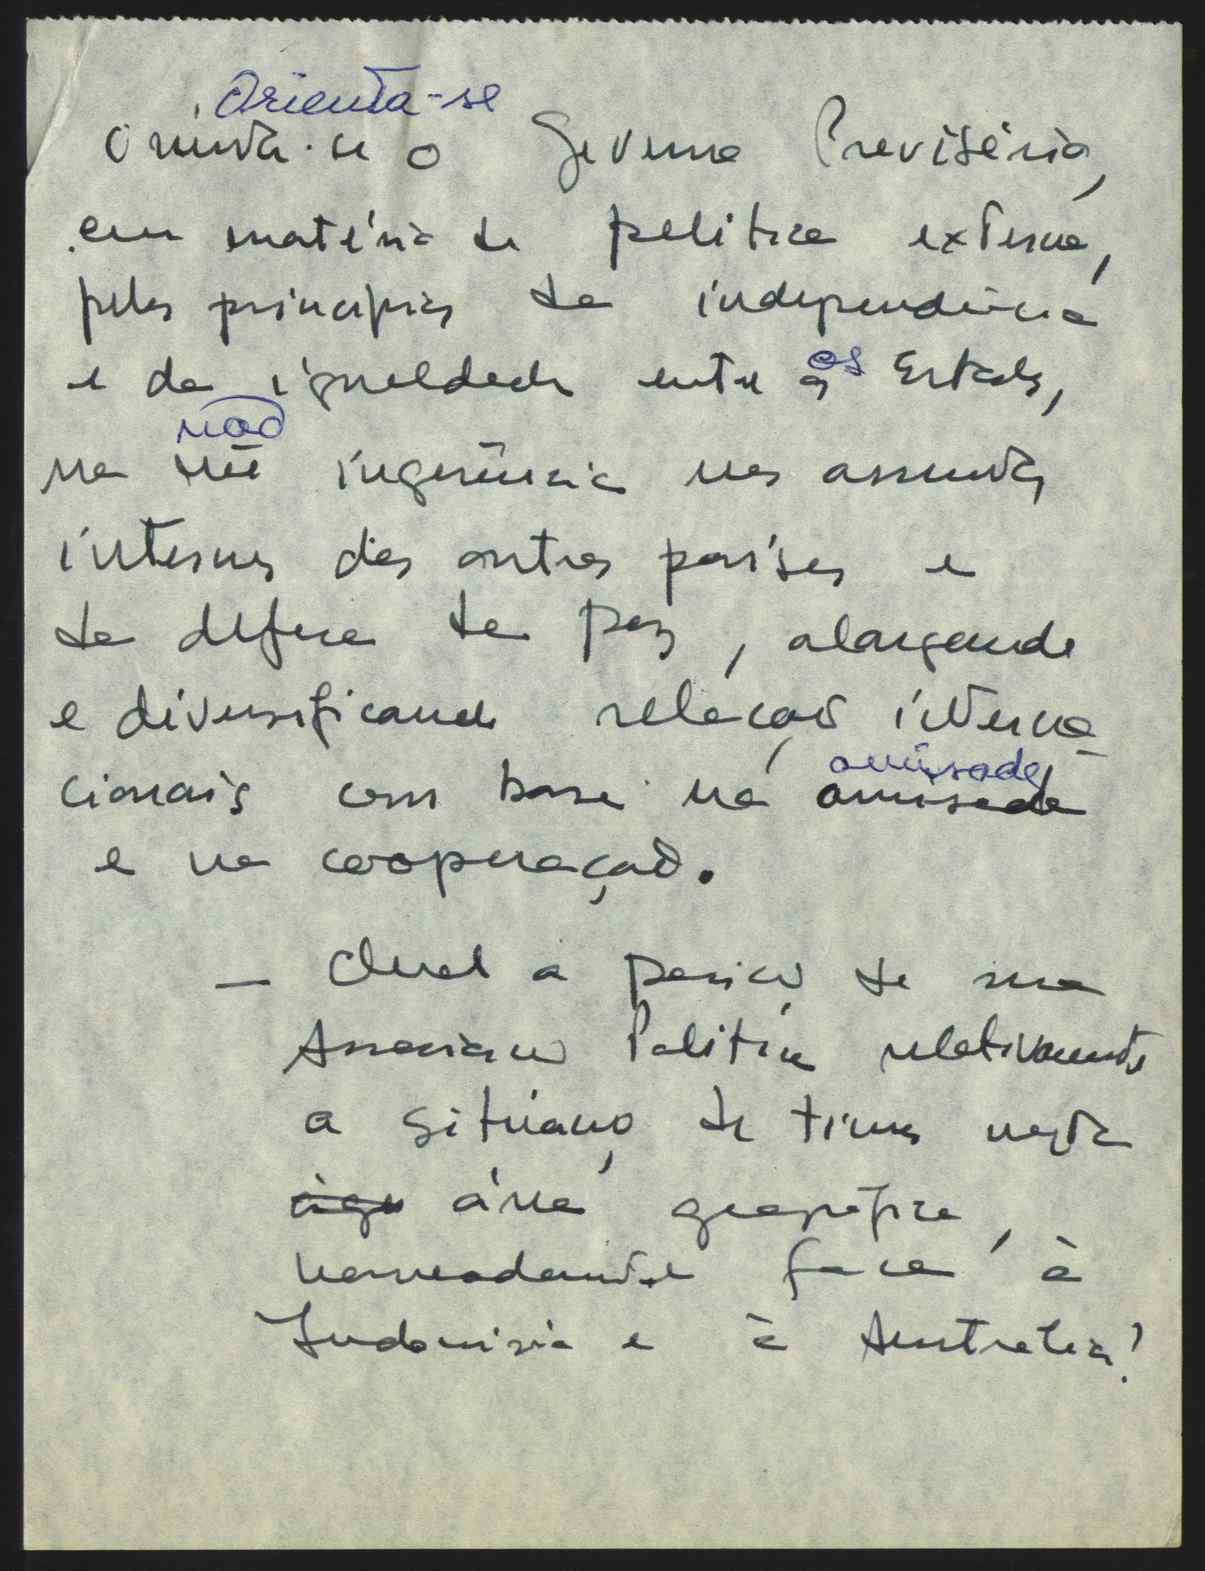 Orienta-se
Orienta-se o Governo Provisório,
em matéria de política externa,
pelos princípios da independência
e da igualdade entre os os Estados,
não
na não ingerência nos assuntos
internos dos outros países e
da defesa da paz, alargando
e diversificando relações interna-
amizade
cionais com base na amizade
e na cooperação.
— Qual a posição da sua
Associação Política relativamente
a situação de timor nesta
área geográfica,
nomeadamente face à
Indonésia e à Austrália?